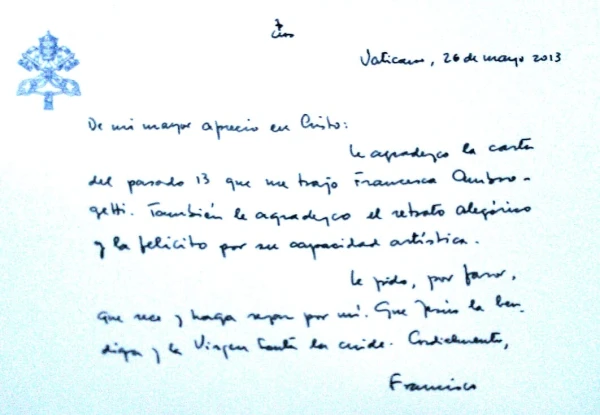 Vaticano, 26 de mayo 2013
De mi mayor aprecio en Cristo:
Le agradezco la carta
del pasado 13 que me trajo Francesca Ambro-
getti. También le agradezco el retrato alegórico
y la felicito por su capacidad artística.
Le pido, por favor,
que rece y haga rezar por mí. Que Jesús la ben-
diga y la Virgen Santa la cuide. Cordialmente,
Francisco